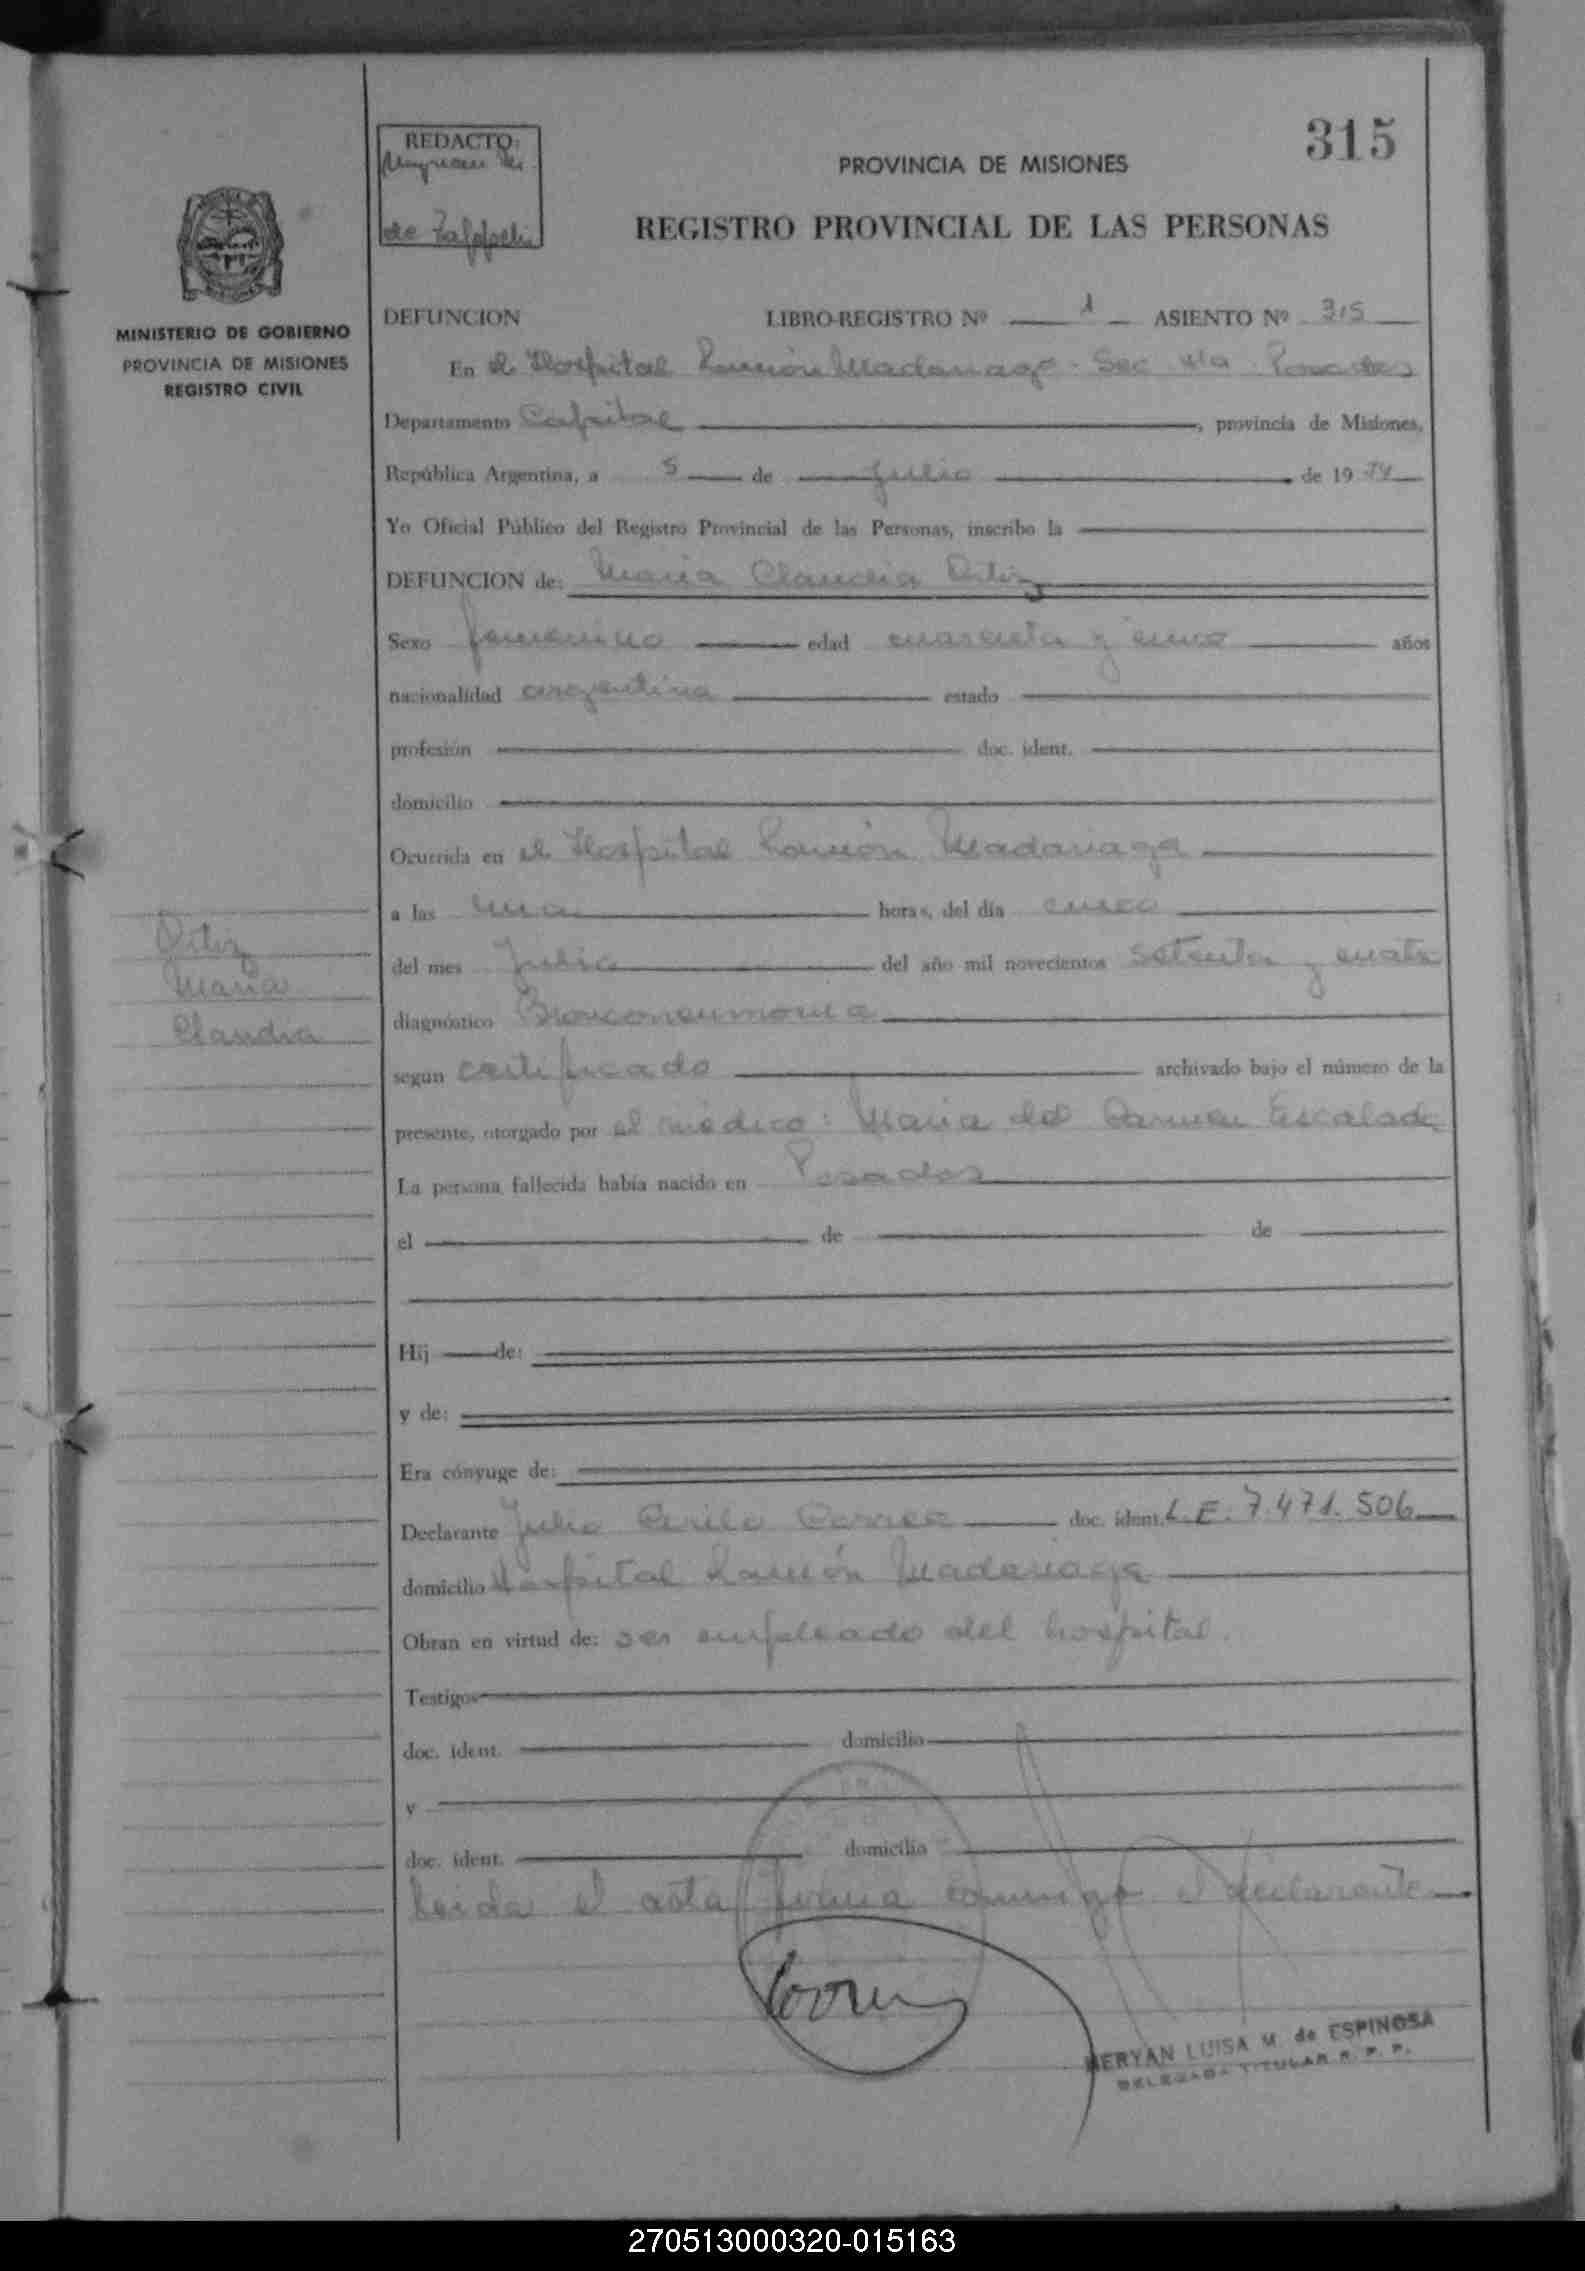 315
REDACTO:
de
PROVINCIA DE MISIONES
REGISTRO PROVINCIAL DE LAS PERSONAS
MINISTERIO DE GOBIERNO
PROVINCIA DE MISIONES
REGISTRO CIVIL
DEFUNCION LIBRO-REGISTRO Nº 1 ASIENTO Nº 315
En el Hospital Ramón Madariaga - Sec 4ta Posadas
Departamento Capital, provincia de Misiones,
República Argentina, a 5 de Julio de 1974
Yo Oficial Público del Registro Provincial de las Personas, inscribo la
DEFUNCION de: Maria Claudia Ortiz
Sexo femenino edad cuarenta y cinco años
nacionalidad argentina estado
profesión doc. ident.
domicilio
Ocurrida en el Hospital Ramón Madariaga
a las una horas, del día cinco
Ortiz
Maria
Claudia
del mes Julio del año mil novecientos setenta y cuatro
diagnóstico Bronconeumonia
según certificado archivado bajo el número de la
presente, otorgado por el médico: Maria del Carmen Escalada
La persona fallecida había nacido en Posadas
el de de
Hij de:
y de:
Era cónyuge de:
Declarante Julio Cirilo Correa doc. ident. L.E. 7.471.506
domicilio Hospital Ramón Madariaga
Obran en virtud de: ser empleado del hospital.
Testigos
doc. ident. domicilio
y
doc. ident. domicilio
Leida el acta firma conmigo el declarante
MERYAN LUISA M. de ESPINOSA
DELEGADA TITULAR R. P. P.
270513000320-015163